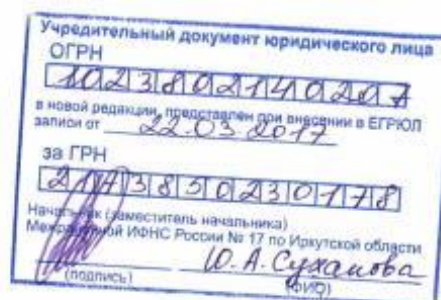 Учредительный документ юридического лица
ОГРН
1023802140207
в новой редакции, представлен при внесении в ЕГРЮЛ
записи от 22.03.2017
за ГРН
2173850230178
Начальник (заместитель начальника)
Межрайонной ИФНС России № 17 по Иркутской области
Ю. А. Суханова
(подпись) (ФИО)